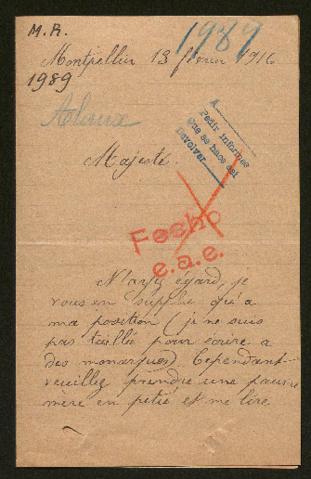 M.R.
1989
Montpellier 13 février 1916
1989
Alaux
A
Pedir informes
que se hace del
Devolver
Majesté.
Fecho
e.a.e.
N'ayez égard, je
vous en supplie qu'a
ma position (je ne suis
pas taillée pour écrire a
des monarques). Cependant
veuillez prendre une pauvre
mère en pitié et me lire